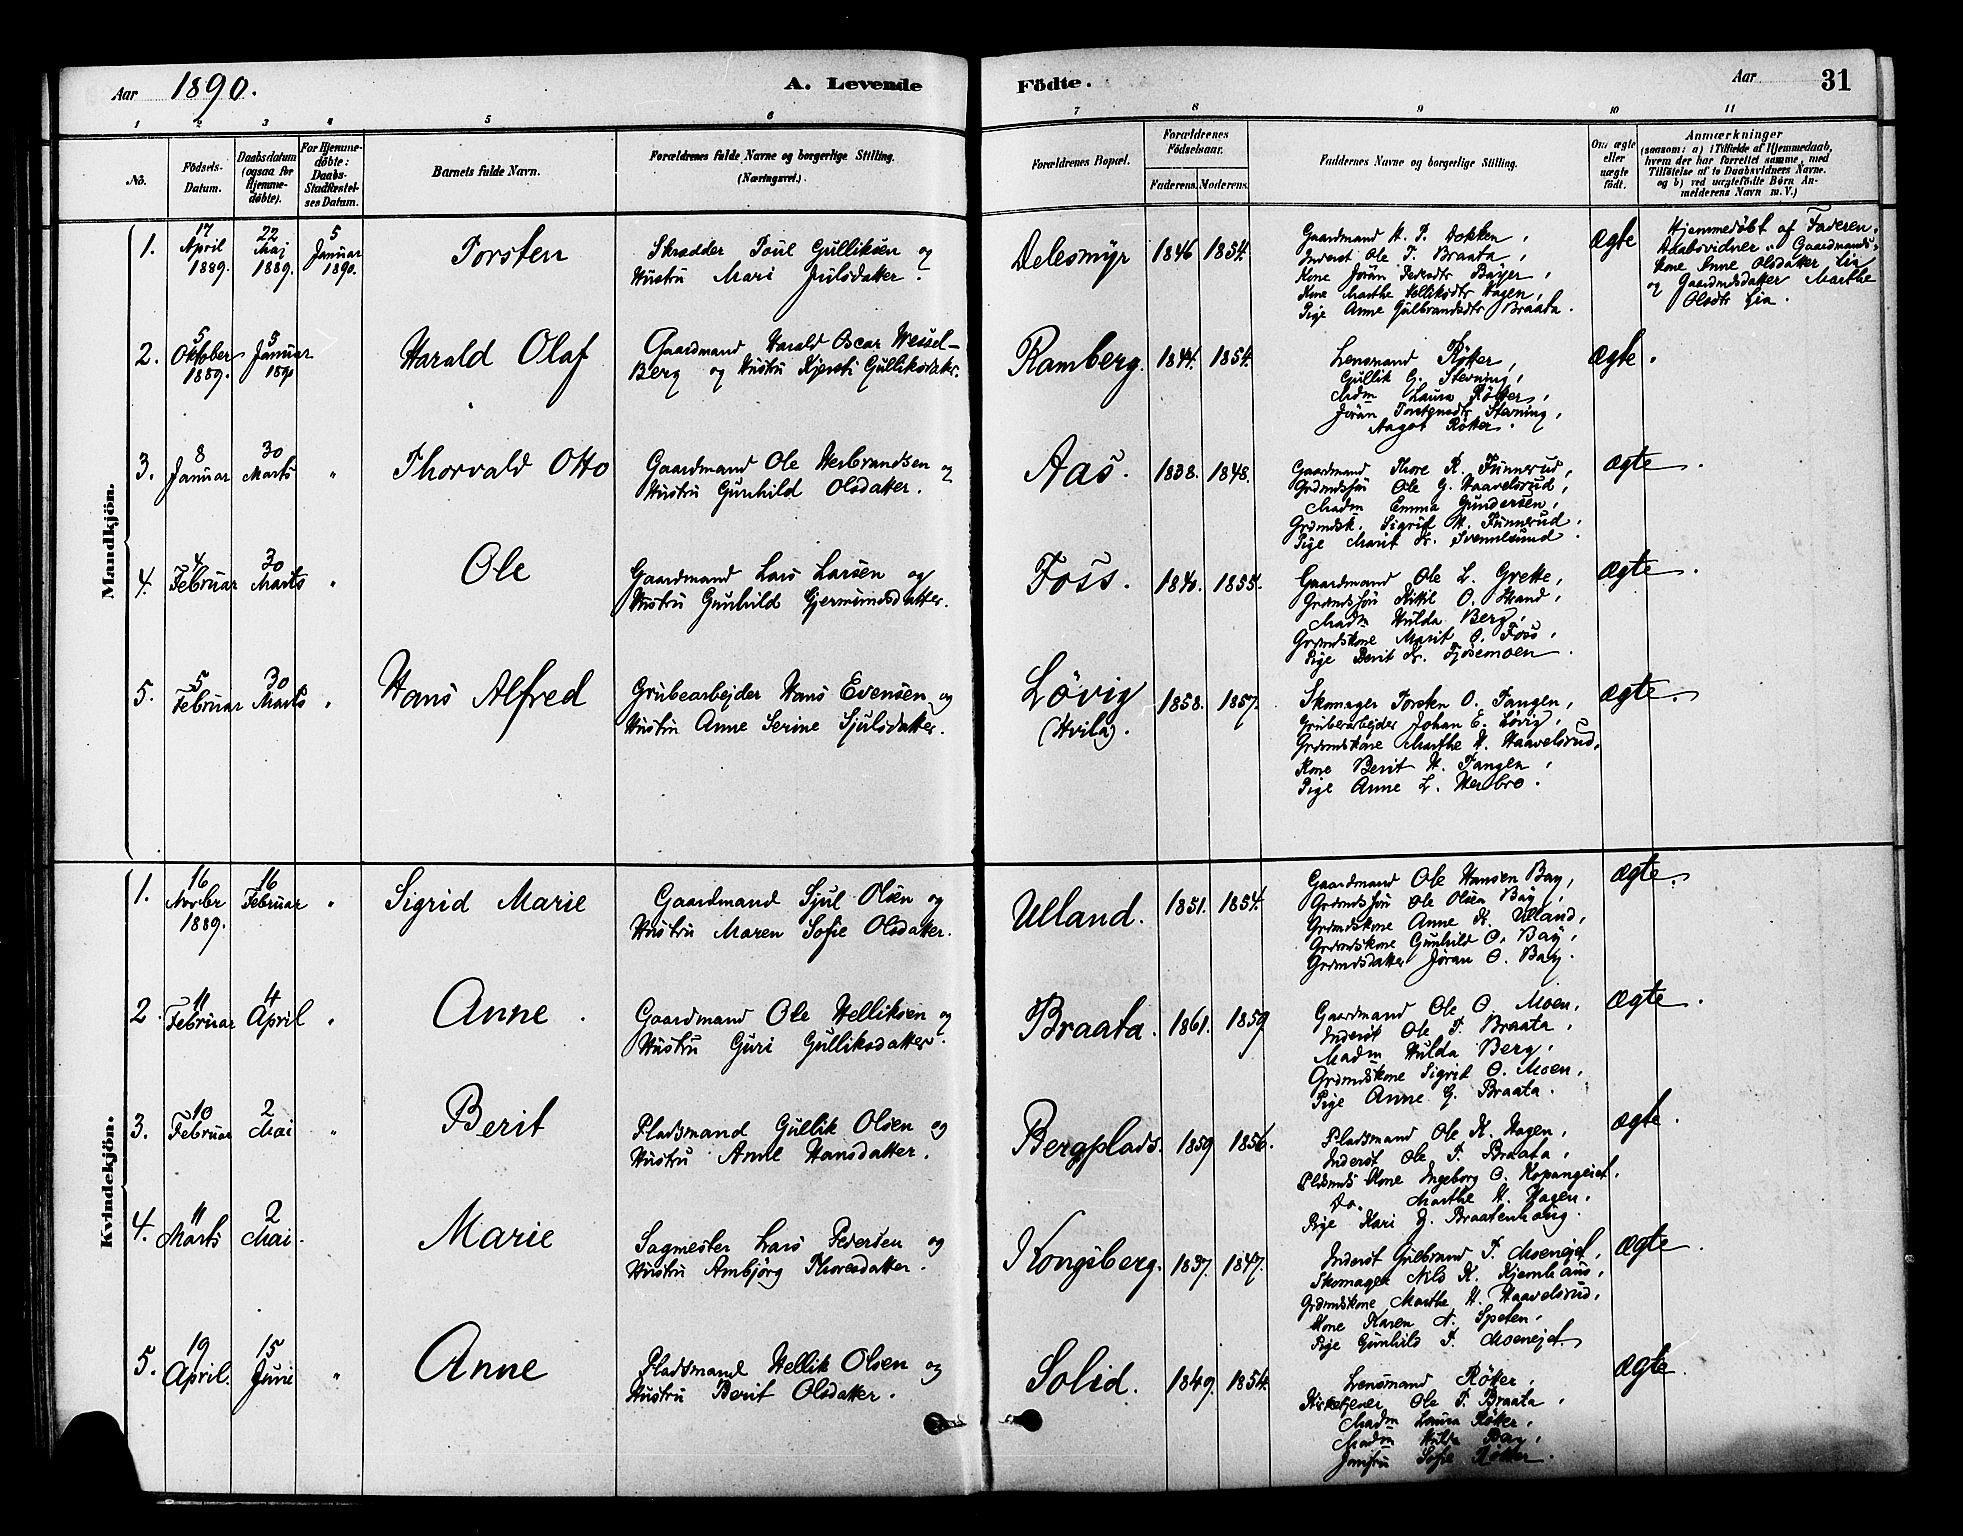 Aar 1890. A. Levende Födte. Aar 31
1 2 3 4 5 6 7 8 9 10 11
No. Födsels-Datum. Daabsdatum (ogsaa for Hjemme-döbte). For Hjemme-döbte: Daabs-Stadfæstel-ses Datum. Barnets fulde Navn. Forældrenes fulde Navne og borgerlige Stilling. (Næringsvei.) Forældrenes Bopæl. Forældrenes Födselsaar. Faderens. Moderens. Faddernes Navne og borgerlige Stilling. Om ægte eller uægte födt. Anmærkninger (saasom: a) i Tilfælde af Hjemmedaab, hvem der har forrettet samme, med Tilföielse af to Daabsvidners Navne. og b) ved uægtefödte Börn Anmelderens Navn m. V.)
Mandkjön.
1. 17 April 1889. 22 Maj 1889. 5 Januar 1890. Torsten
Skrædder Poul Gulliksen og
Hustru Mari Julsdatter.
Delesmyr 1846 1854.
Gaardmand H. P. Dokken,
Inderst Ole T. Braata,
Kone Jöran Pedersdtr Bayer,
Kone Marthe Helliksdtr Hagen,
Pige Anne Gulbrandsdtr Braata.
Ægte
Hjemmedöbt af Faderen.
Daabsvidner: Gaardmands-
kone Anne Olsdatter Lia
og Gaardmdsdatter Marthe
Olsdtr Lia.
2. 5 Oktober 1889. 5 Januar 1890 Harald Olaf
Gaardmand Harald Oscar Wessel-
Berg og Hustru Kjersti Gulliksdatter.
Ramberg. 1844. 1854.
Lensmand Rötter,
Gullik G. Stevning,
Madm Laura Rötter,
Jöran Stevning,
Aagot Rötter.
Ægte.
3. 8 Januar 30 Marts " Thorvald Otto
Gaardmand Ole Herbrandsen og
Hustru Gunhild Olsdatter.
Aas. 1838. 1848.
Gaardmand Thore K. Funnerud,
Grdmdssön Ole G. Haavelsrud,
Madm Emma Gundersen,
Grdmdsk. Sigrid H. Funnerud.
Pige Marit Svennesund.
Ægte.
4. 4 Februar 30 Marts " Ole
Gaardmand Lars Larsen og
Hustru Gunhild Gjermundsdatter.
Foss. 1840. 1855.
Gaardmand Ole L. Grette,
Grdmdssön Kittil O. Strand,
Madm Hulda Berg,
Grdmdskone Marit O. Foss,
Pige Berit Fjösemoen.
Ægte.
5. 5 Februar 30 Marts " Hans Alfred
Grubearbejder Hans Evensen og
Hustru Anne Serine Sjulsdatter.
Lövig (Hvila). 1858. 1857.
Skomager Torsten O. Tangen,
Grubearbejder Johan E. Lövig,
Grdmdskone Marthe H. Haavelsrud,
Kone Berit H. Tangen,
Pige Anne L. Henbro.
Ægte.
Kvindekjön.
1. 16 Novbr 1889. 16 Februar " Sigrid Marie
Gaardmand Sjul Olsen og
Hustru Maren Sofie Olsdatter.
Ulland. 1851. 1854.
Gaardmand Ole Hansen Bay,
Grdmdssön Ole Olsen Bay,
Grdmdskone Anne K. Ulland,
Grdmdskone Gunhild O. Bay,
Grdmdsdatter Jöran O. Bay.
Ægte.
2. 11 Februar 4 April " Anne.
Gaardmand Ole Helliksen og
Hustru Guri Gulliksdatter.
Braata. 1861. 1859
Gaardmand Ole O. Moen,
Inderst Ole T. Braata,
Madm Hulda Berg,
Grdmdskone Sigrid O. Moen,
Pige Anne G. Braata.
Ægte.
3. 10 Februar 2 Mai " Berit
Pladsmand Gullik Olsen og
Hustru Anne Hansdatter.
Bergplads. 1859 1856.
Pladsmand Ole K. Hagen,
Inderst Ole T. Braata,
Pladsmds Kone Ingeborg O. Kopangeiet,
Do. Marthe H. Hagen,
Pige Kari J. Braatenhaug.
Ægte.
4. 11 Marts 2 Mai. Marie
Sagmester Lars Pedersen og
Hustru Ambjörg Thoresdatter.
Kongsberg. 1837. 1847.
Inderst Gulbrand T. Moenejet,
Skomager Nils K. Kjemhaus,
Grdmdskone Marthe H. Haavelsrud,
Kone Karen A. Speten,
Pige Gunhild T. Moenejet.
Ægte.
5. 19 April. 15 Juni " Anne
Pladsmand Hellik Olsen og
Hustru Berit Olsdatter.
Solid. 1849. 1854.
Lensmand Rötter,
Kirketjener Ole T. Braata,
Madm Laura Rötter,
Madm Hulda Bay,
Jomfru Sofie Rötter.
Ægte.